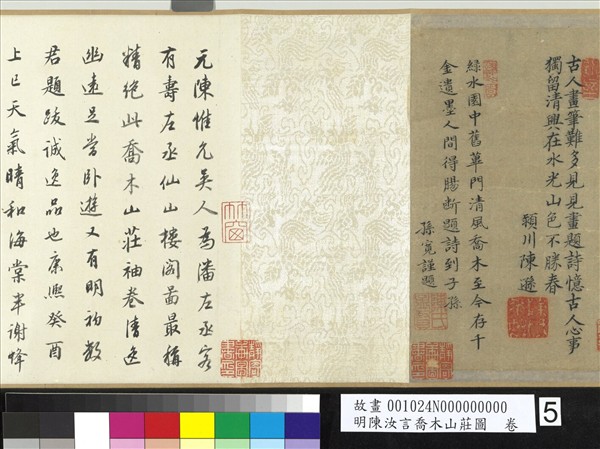 古人畫筆難多見見畫題詩憶古人心事
獨留清興在水光山色不勝春
潁川陳遜
綠水園中舊蓽門清風喬木至今存千
金遺墨人間得腸斷題詩到子孫
孫寬謹題
元陳惟允吳人為潘左丞客
有壽左丞仙山樓閣啚最稱
精絕此喬木山莊袖卷清逸
幽遠足當臥遊又有明初數
君題跋誠逸品也康熙癸酉
上巳天氣晴和海棠半謝烽
故畫 001024N000000000
明陳汝言喬木山莊圖 卷
5